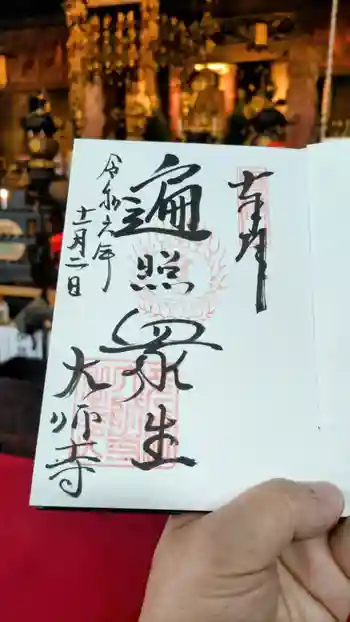 奉拝
遍照衆生
大師寺
令和六年
十二月二日